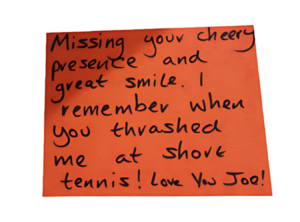 Missing your cheery
presence and
great smile. I
remember when
you thrashed
me at short
tennis! Love You Joe!